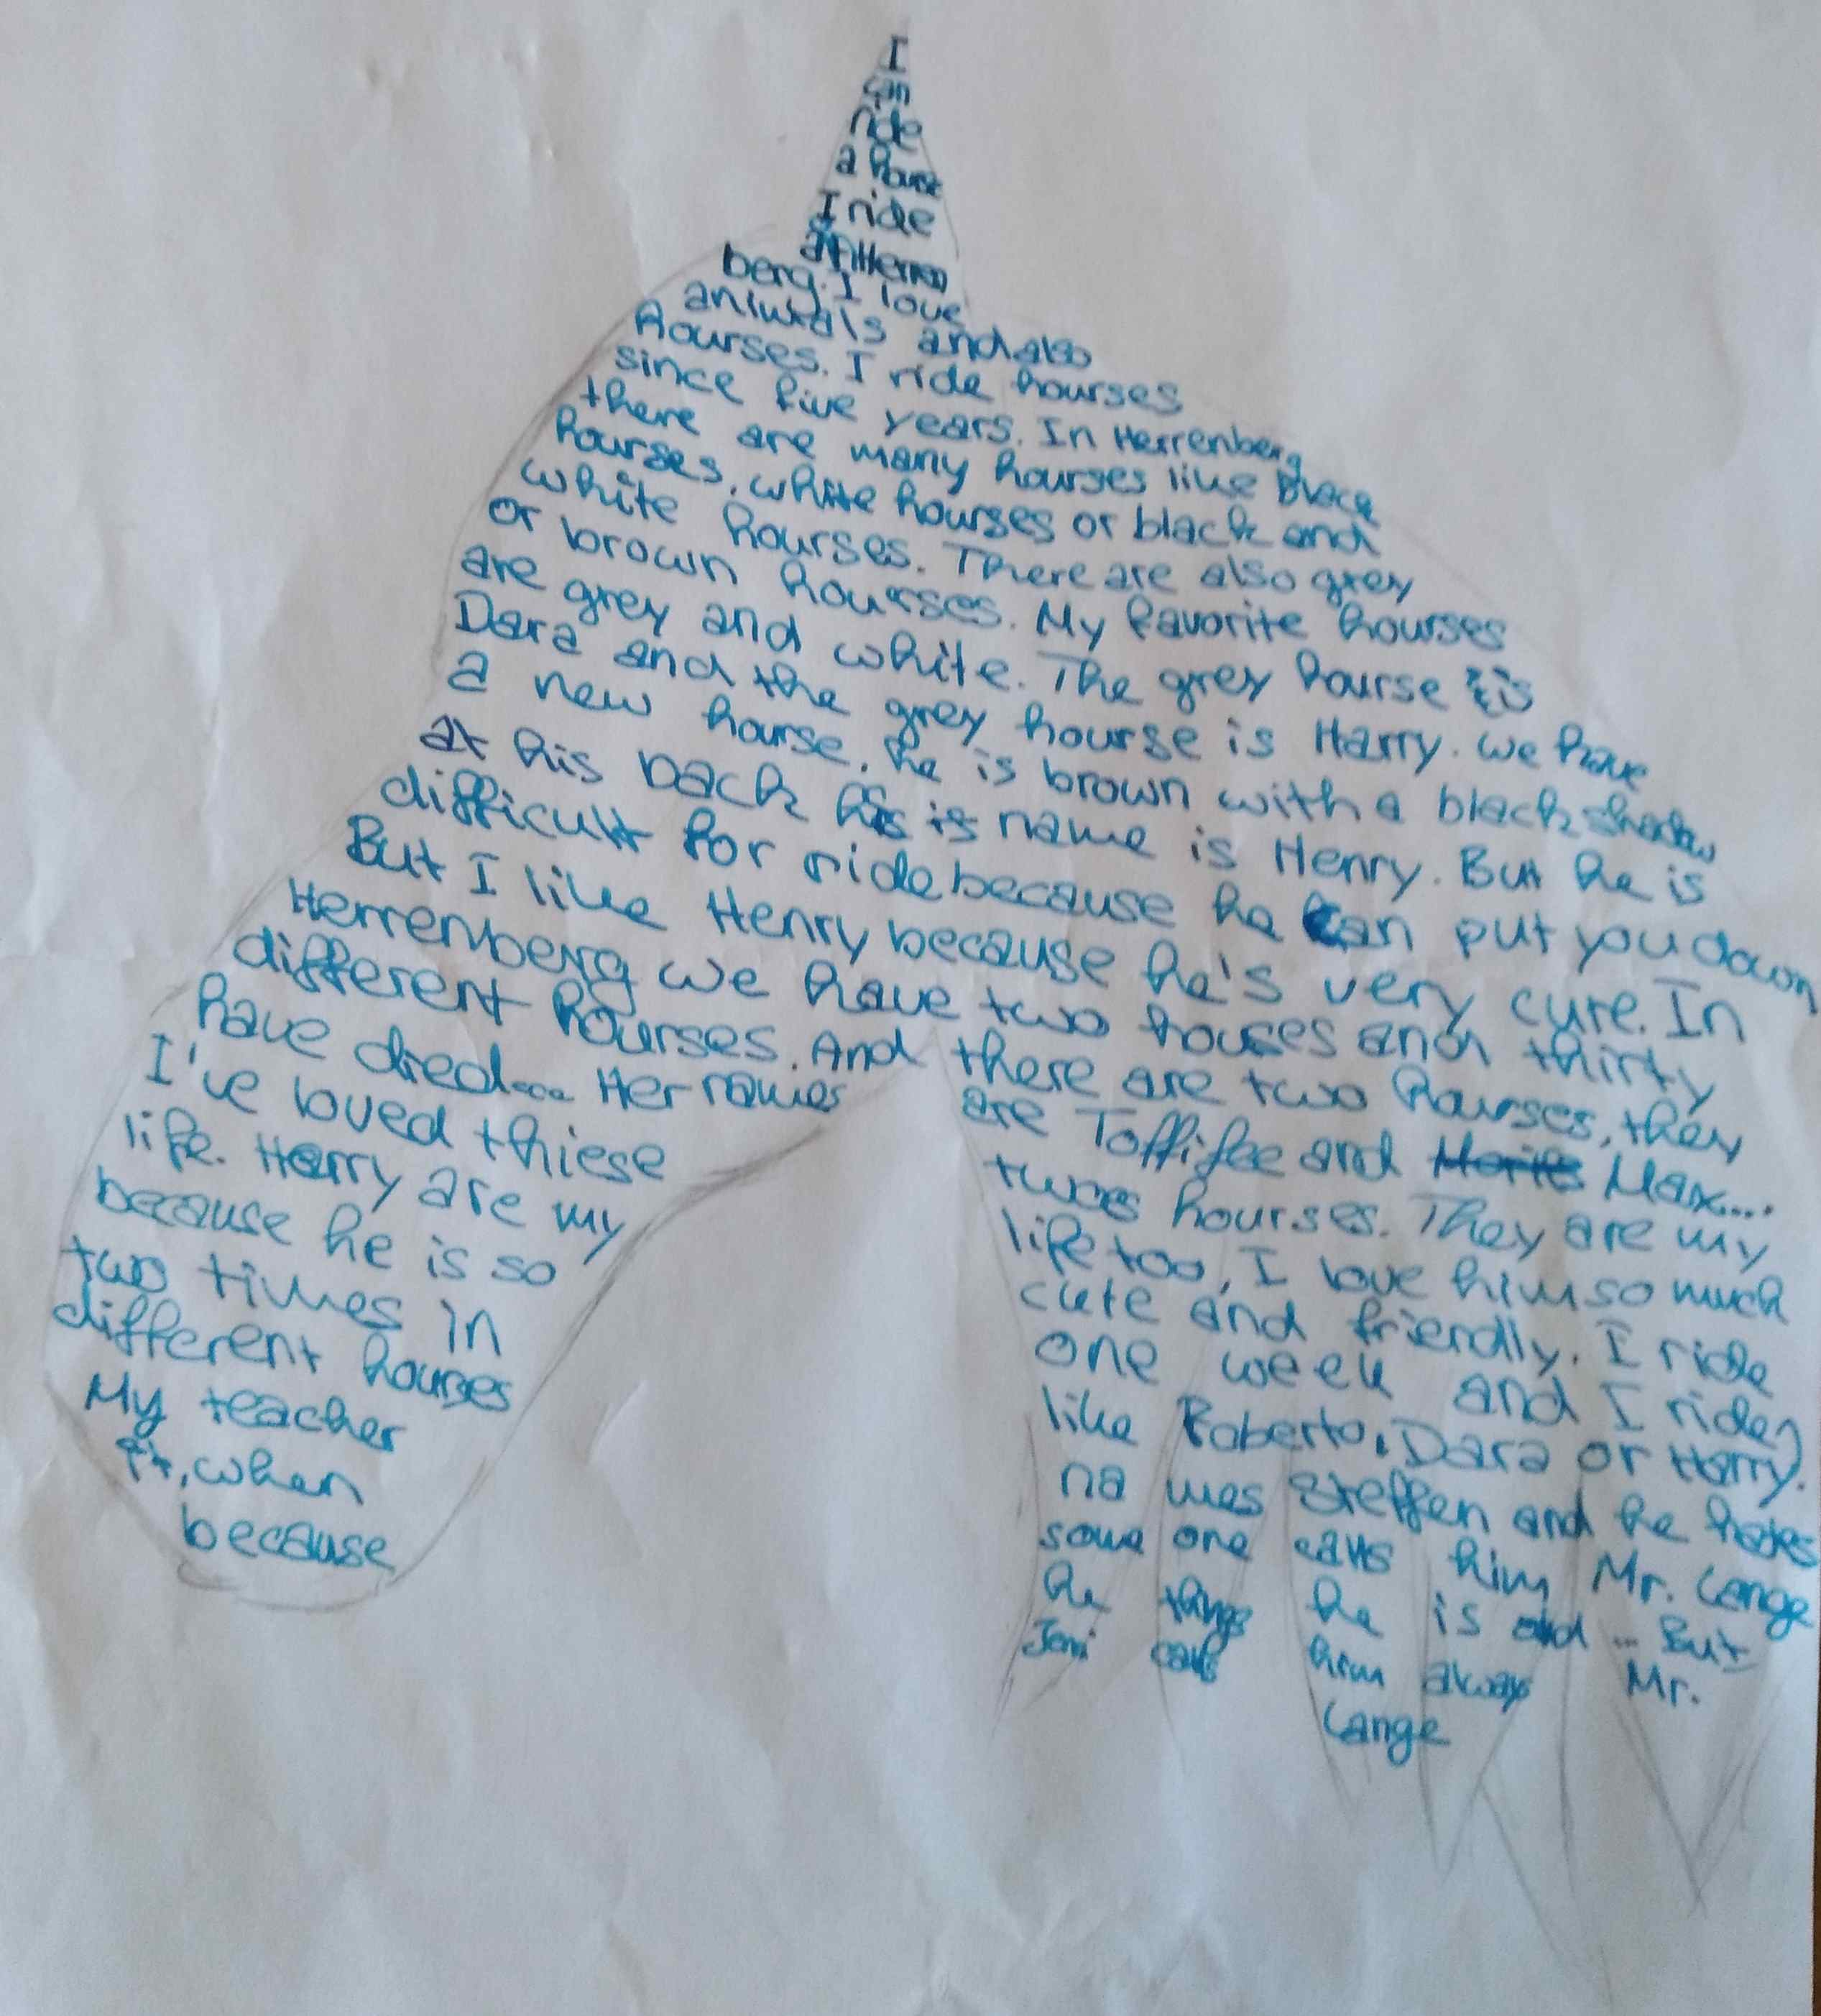 I
can
ride
a hourse
I ride
in Herren
berg. I love
animals and also
hourses. I ride hourses
since five years. In Herrenberg
there are many hourses like black
hourses, white hourses or black and
white hourses. There are also grey
or brown hourses. My favorite hourses
are grey and white. The grey hourse is
Dara and the grey hourse is Harry. We have
a new hourse, he is brown with a black shadow
at his back his is name is Henry. But he is
difficult for ride because he can put you down
But I like Henry because he's very cute. In
Herrenberg we have two houses and thirty
different hourses. And there are two hourses, they
have died... Her names are Toffifee and Max...
I've loved thiese twoes hourses. They are my
life. Harry are my life too, I love him so much
because he is so cute and friendly. I ride
two times in one week and I ride
different hourses like Roberto, Dara or Harry.
My teacher names Steffen and he hates
it, when some one calls him Mr. Lange
because he things he is old... But
Jemi calls him always Mr.
Lange